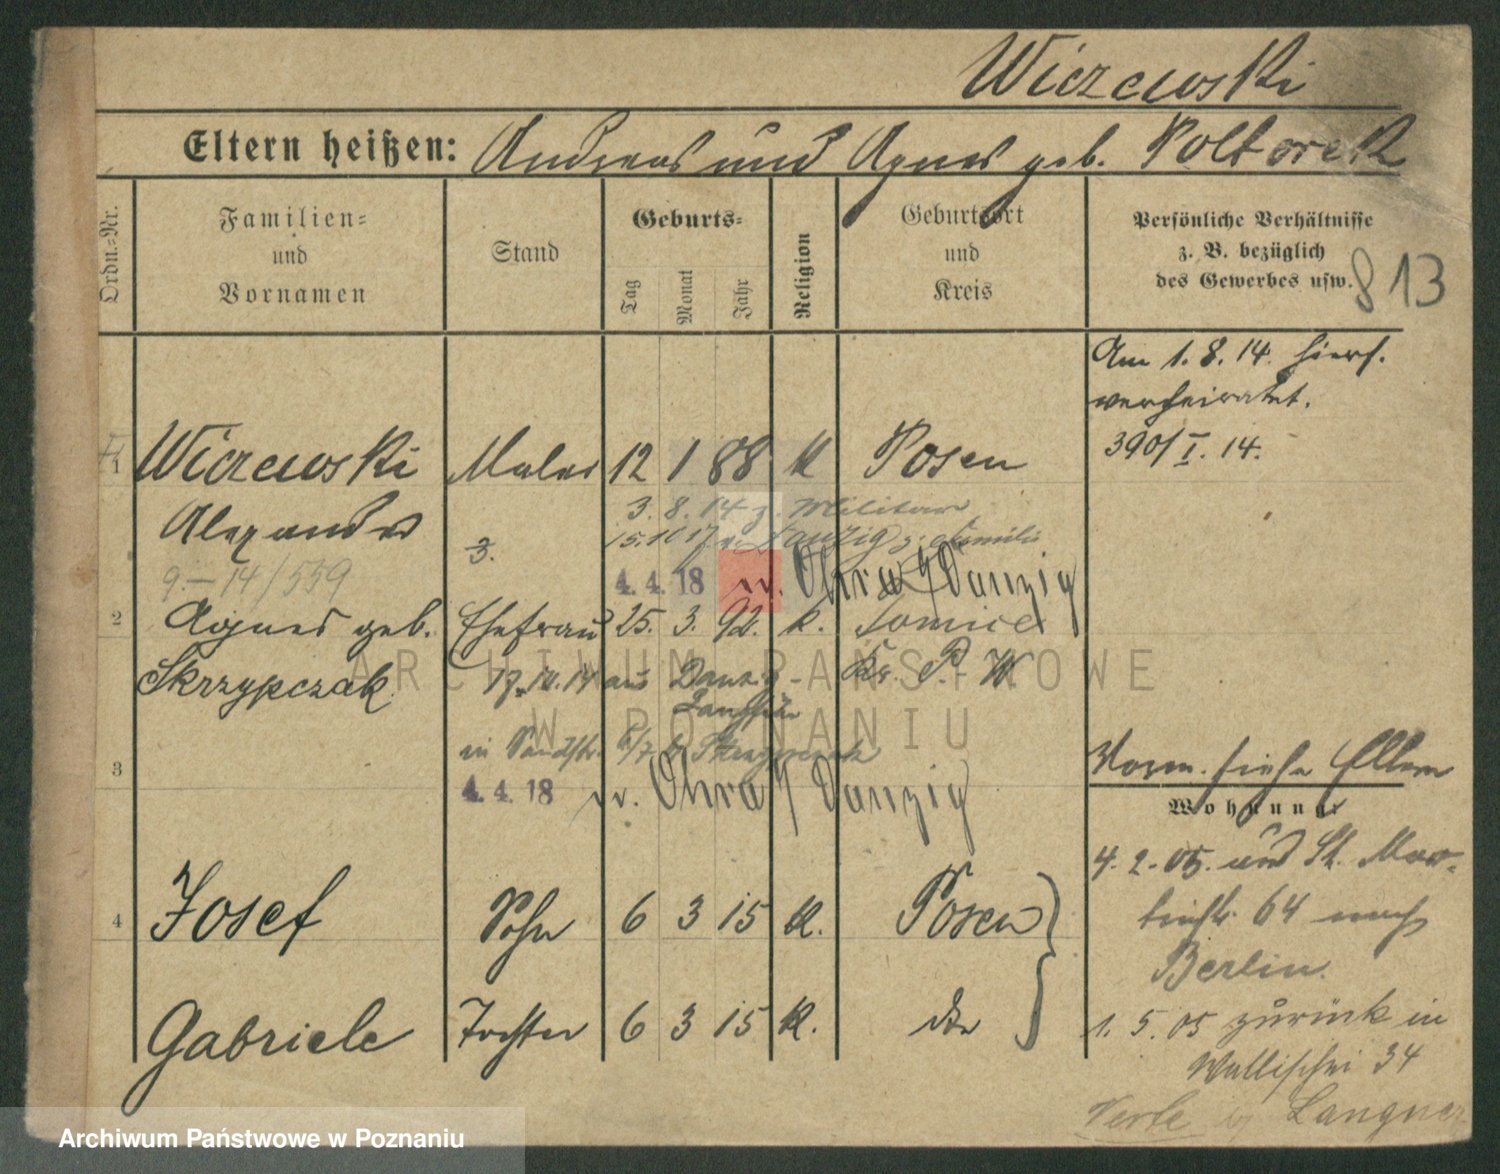 Wiczewski
Eltern heißen: Andreas und Agnes geb. Poltorek
Ordn.=Nr.
Familien=
und
Vornamen
Stand
Geburts=
Tag
Monat
Jahr
Religion
Geburtsort
und
Kreis
Persönliche Verhältnisse
z. B. bezüglich
des Gewerbes usw.
813
Am 1. 8. 14. hiers.
verheiratet.
390/I. 14.
1 Wiczewski Maler 12 1 88 K Posen
Alexander
3. 8. 14 z. Militär
15.10 17 v. Danzig z. Familie
3.
9.–14/539
4. 4. 18 v. Ohra / Danzig
2 Agnes geb. Ehefrau 25. 3. 92. k. Tomice
Skrzypczak
Kr. P. W
17. 10. 14 aus Danzig-
Langfuhr
in
3
4. 4. 18 v. Ohra / Danzig
Vorm. siehe Eltern
Wohnung:
4. 2. 05. aus St. Mar-
tinstr. 64 nach
Berlin.
4 Josef Sohn 6 3 15 K. Posen
Gabriele Tochter 6 3 15 K. dto
1. 5. 05 zurück in
Wallischei 34
Langner
ARCHIWUM PAŃSTWOWE
W POZNANIU
Archiwum Państwowe w Poznaniu